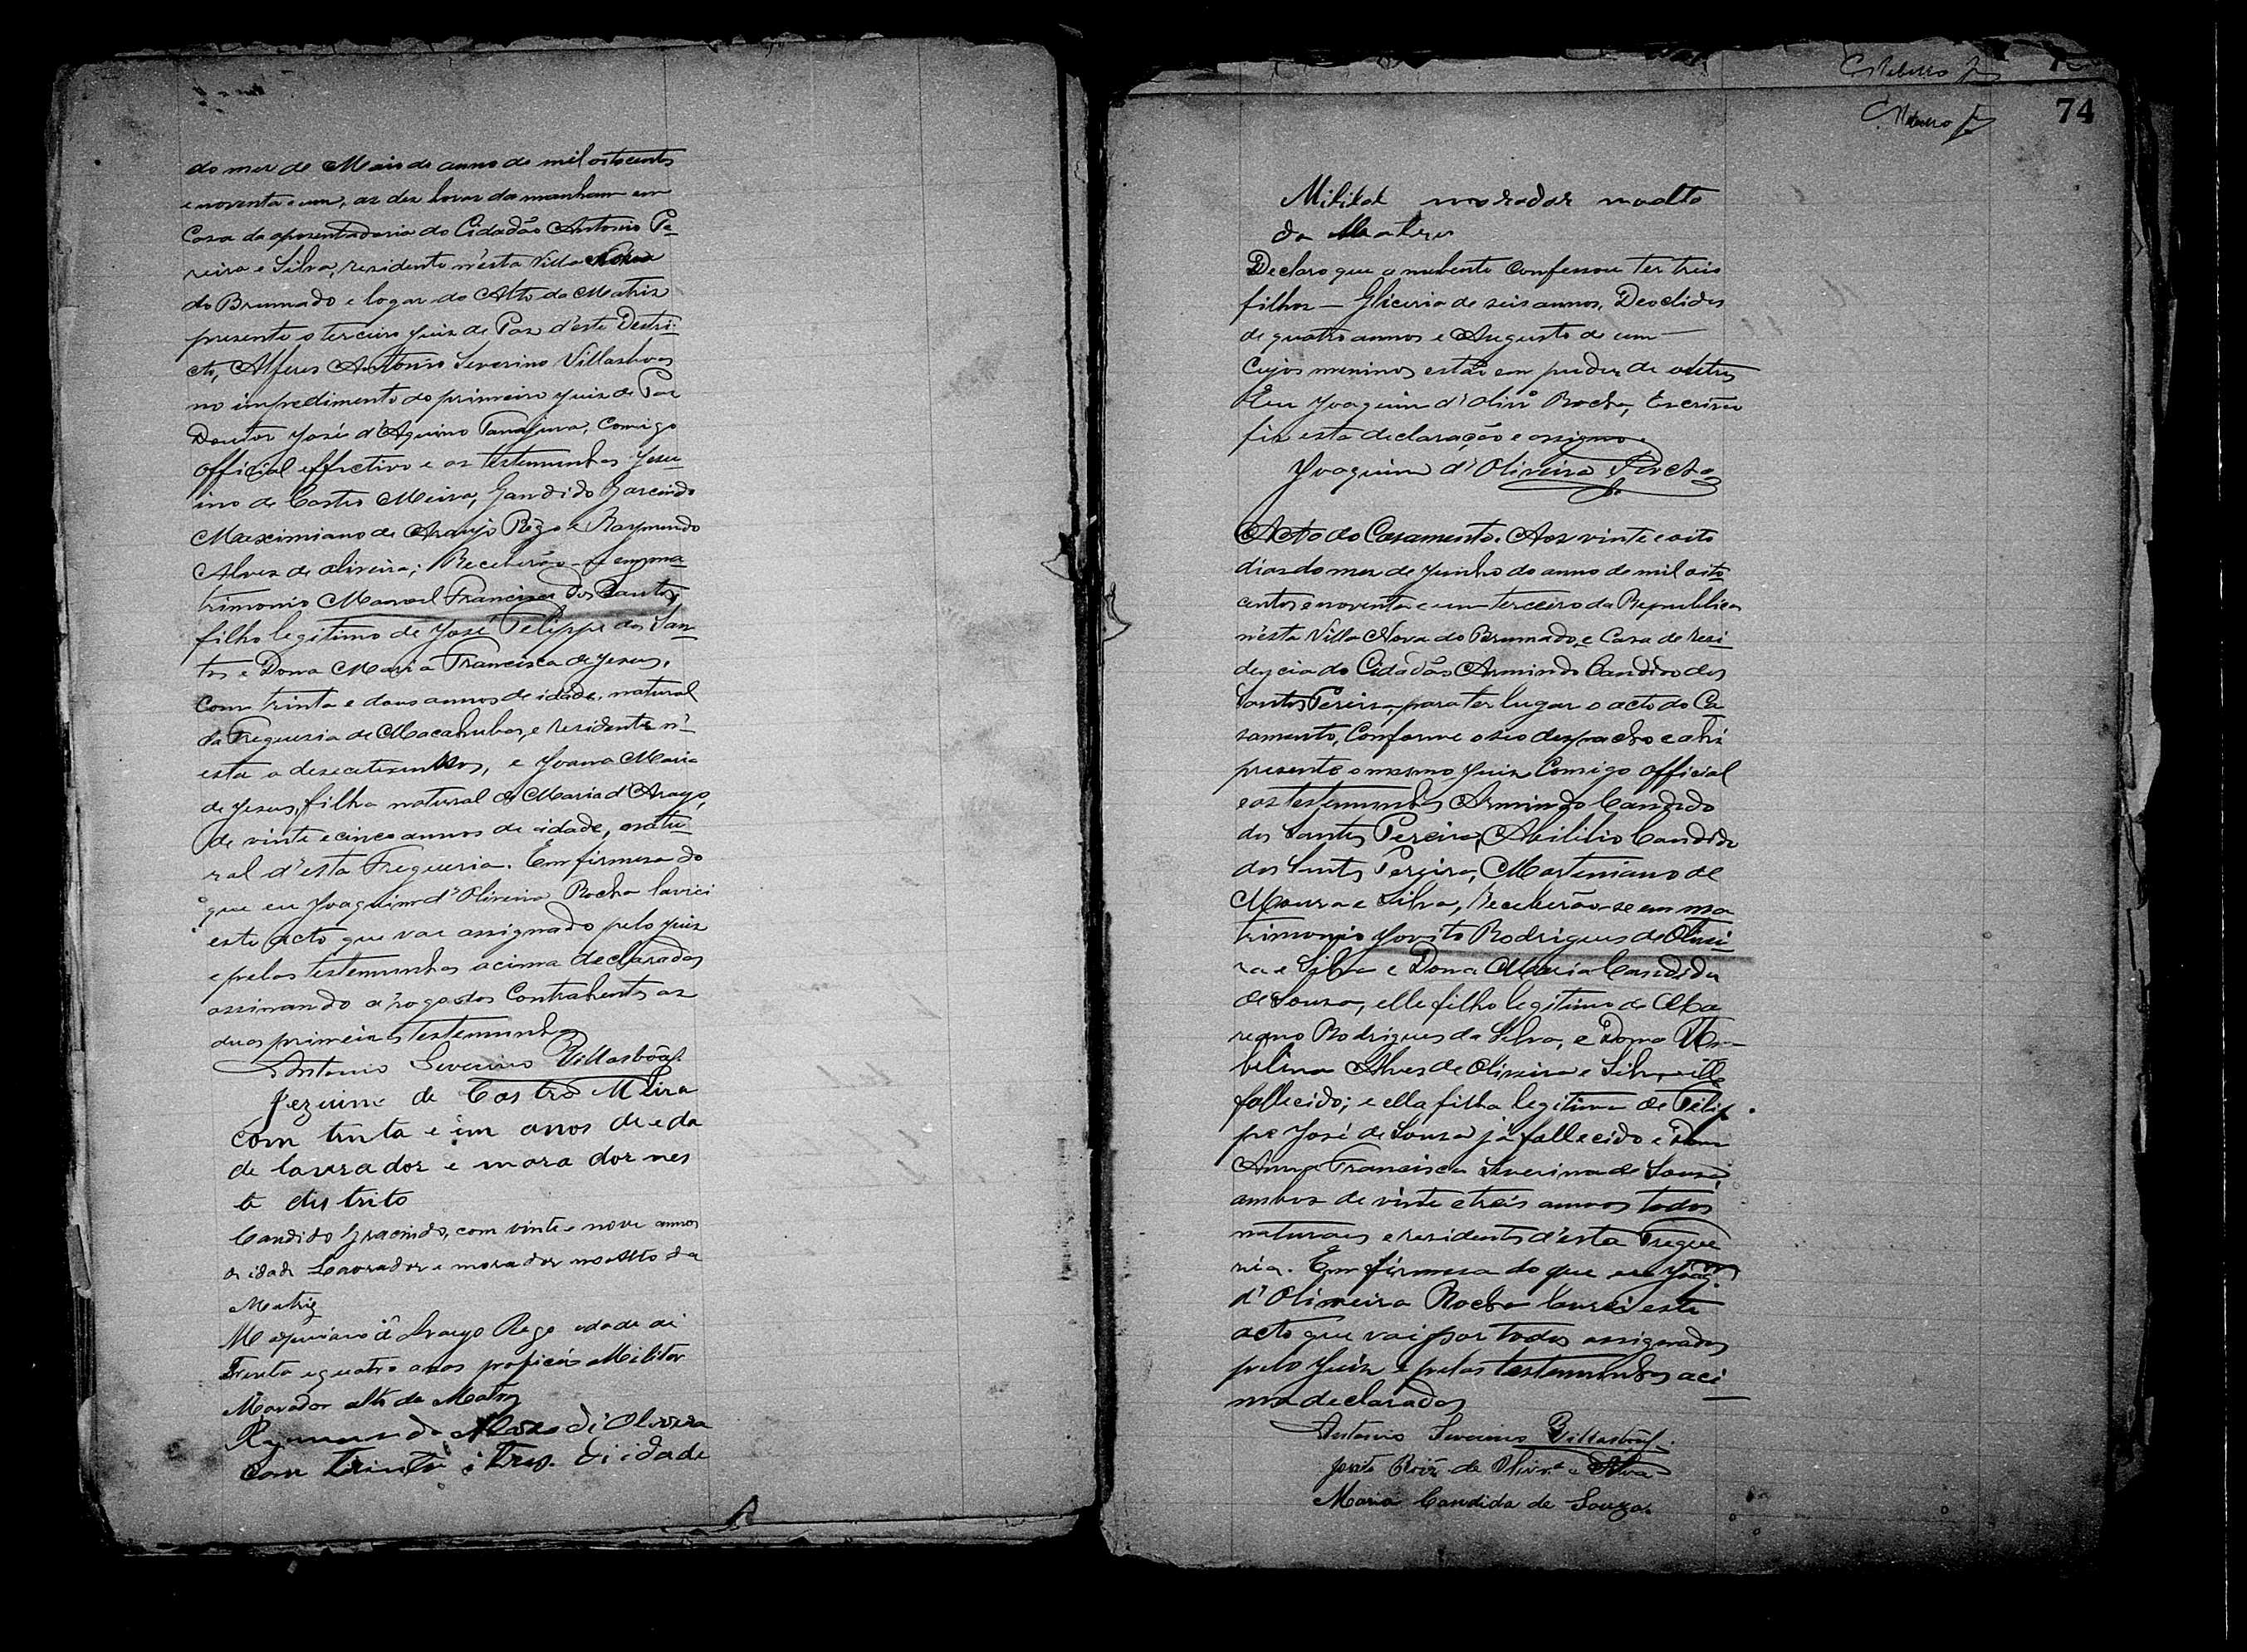 do mez de Maio do anno de mil oitocentos
e noventa e um, as dez horas da manham em
Casa da aposentadoria do Cidadão Antonio Pe-
reira e Silva, residente n'esta Villa Nova
do Brumado e logar do Alto da Matriz
presente o terceiro Juiz de Paz d'este Destri-
cto, Alferes Antonio Severino Villasboas
no impedimento do primeiro Juiz de Paz
Doutor José d'Aquino Tanajura, Comigo
official effectivo e as testemunhas Jesu-
ino de Castro Meira, Candido Gracindo
Maximiano de Araujo Rêgo e Raymundo
Alves de oliveira; Receberão-se em ma-
trimonio Manoel Francisco dos Santos,
filho legitimo de José Felippe dos San-
tos e Dona Maria Francisca de Jesus,
com trinta e dous annos de idade, natural
da Freguesia de Macahubas, e residente n'-
esta a, e Joana Maria
de Jesus, filha natural de Maria d'Araujo,
de vinte e cinco annos de idade, natu-
ral d'esta Freguesia. Em firmesa do
que eu Joaquim d'Oliveira Rocha lavrei
este acto que vae assignado pelo juiz
e pelas testemunhas acima declaradas
assinando a rogo dos Contrahentes as
duas primeiras testemunhas
Antonio Severino Villasbôas
Jezuino de Castro Meira
com trinta e um anos de eda
de lavrador e mora dor nes
te distrito
Candido Gracindo, com vinte e nove annos
de idade Lavrador e morador no Alto da
Matriz
Maximiano de Araujo Rego edade di
Trinta e quatro anos proficão Militar
Morador alto da Matriz
Raymundo Alves di Oliveira
com trinta i tres di idade
C Rebello Jr
C Rebello Jr
74
Militar morador no alto
da Matriz
Declaro que o nubente confessou ter treis
filhos — Gliceria de seis annos, Deoclides
de quatro annos e Augusto de um —
Cujos meninos estão em puder de outros
Eu Joaquim d'Olivª Rocha, Escrivão
fiz esta declaração e assigno.
Joaquim d'Oliveira Rocha
Acto do Casamento. Aos vinte e oito
dias do mez de Junho do anno de mil oito
centos e noventa e um terceiro da Republica
n'esta Villa Nova do Brumado e Casa de resi-
dencia do Cidadão Armindo Candido dos
Santos Pereira, para ter lugar o acto do Ca
samento, Conforme o seo despacho e ahi
presente o mesmo Juiz Comigo official
e as testemunhas Armindo Candido
dos Santos Pereira, Abilio Candido
dos Santos Pereira, Martiniano de
Moura e Silva, Receberão-se em ma
trimonio Jovito Rodrigues de Olivei-
ra e Silva e Dona Maria Candida
de Souza, elle filho legitimo de
Rodrigues da Silva, e Dona Um-
belina Alves de Oliveira e Silva, elle
fallecido; e ella filha legitima de Filip-
pe José de Souza já fallecido e Dona
Anna Francisca Severina de Souza,
ambos de vinte e treis annos todos
naturaes e residentes d'esta Fregue
sia. Em firmesa do que eu Joaqm
d'Oliveira Rocha lavrei este
acto que vai por todos assignados
pelo Juiz e pelas testemunhas aci-
ma declarados
Antonio Severino Villasbôas
Jovito Roiz de Olivrª e Silva
Maria Candida de Souza.